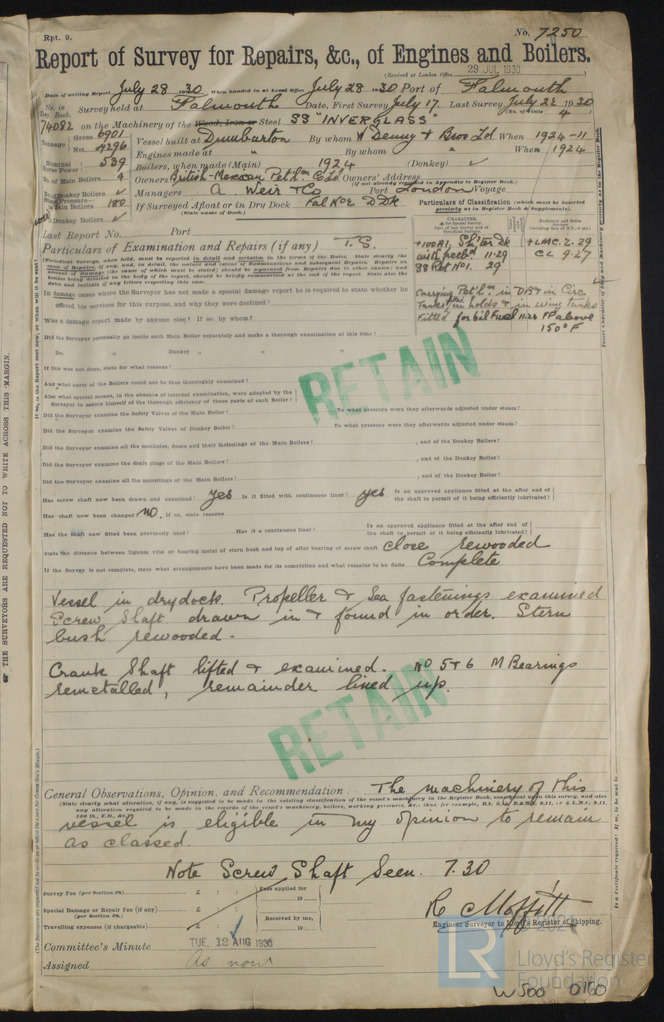 Rpt. 9.
No. 7250
Report of Survey for Repairs, &c., of Engines and Boilers.
(Received at London Office 29 JUL 1930
Date of writing Report July 28 1930 When handed in at Local Office July 28 1930 Port of Falmouth
No. in Reg. Book. Survey held at Falmouth Date, First Survey July 17. Last Survey July 22 1930
74082 on the Machinery of the Wood, Iron or Steel SS "INVERGLASS" (No. of Visits 4)
Tonnage Gross 6901 Net 4296
Vessel built at Dumbarton By whom W Denny & Bros Ld When 1924-11
Engines made at " By whom " When 1924
Nominal Horse Power 539
Boilers, when made (Main) 1924 (Donkey) ✓
No. of Main Boilers 4
Owners British-Mexican Petlm Co Ld Owners' Address
(if not already recorded in Appendix to Register Book.)
No. of Donkey Boilers ✓
Managers A. Weir & Co Port London Voyage
Steam Pressure in Main Boilers 180
If Surveyed Afloat or in Dry Dock Fal No 2 D Dk
(State name of Dock.)
in Donkey Boilers ✓
Particulars of Classification (which must be inserted precisely as in Register Book & Supplements).
+100A1, Shlter Dk
with freebd 11.29
SS Fal No 1. 29
+LMC. 2.29
CL 9.27
Carrying Petlm in DB & in Circ
Tanks in holds & in wing tanks
Fitted for oil Fuel 11.24 FP above
150°F
Last Report No. Port
Particulars of Examination and Repairs (if any) T.S.
In damage cases where the Surveyor has not made a special damage report he is required to state whether he
offered his services for this purpose, and why they were declined?
Was a damage report made by anyone else? If so, by whom?
Did the Surveyor personally go inside each Main Boiler separately and make a thorough examination at this time?
Do. " Donkey " " "
If this was not done, state for what reasons?
And what parts of the Boilers could not be thus thoroughly examined?
Also what special means, in the absence of internal examination, were adopted by the
Surveyor to assure himself of the thorough efficiency of those parts of each Boiler?
RETAIN
Did the Surveyor examine the Safety Valves of the Main Boiler? To what pressure were they afterwards adjusted under steam?
Did the Surveyor examine the Safety Valves of Donkey Boiler? To what pressure were they afterwards adjusted under steam?
Did the Surveyor examine all the manholes, doors and their fastenings of the Main Boilers? , and of the Donkey Boiler?
Did the Surveyor examine the drain plugs of the Main Boilers? , and of the Donkey Boiler?
Did the Surveyor examine all the mountings of the Main Boilers? , and of the Donkey Boiler?
Has screw shaft now been drawn and examined? yes Is it fitted with continuous liner? yes. Is an approved appliance fitted at the after end of the shaft to permit of it being efficiently lubricated?
Has shaft now been changed? No. If so, state reasons
Has the shaft now fitted been previously used? Has it a continuous liner? Is an approved appliance fitted at the after end of the shaft to permit of it being efficiently lubricated?
State the distance between lignum vitæ or bearing metal of stern bush and top of after bearing of screw shaft close rewooded
If the Survey is not complete, state what arrangements have been made for its completion and what remains to be done Complete
Vessel in drydock. Propeller & Sea fastenings examined
Screw Shaft drawn in & found in order. Stern
bush rewooded.
Crank Shaft lifted & examined. No 5 & 6 M Bearings
remetalled, remainder lined up.
RETAIN
General Observations, Opinion, and Recommendation:— The machinery of this
vessel is eligible in my opinion to remain
as classed.
Note Screw Shaft Seen. 7.30
Survey Fee (per Section 29) £ : : Fees applied for
19
Special Damage or Repair Fee (if any) £ : :
(per Section 29.)
Received by me,
Travelling expenses (if chargeable) £ : : 19
R C Moffitt
Engineer Surveyor to Lloyd's Register of Shipping.
Committee's Minute TUE. 12 AUG 1930
Assigned As now
LR
Lloyd's Register
Foundation
W500 0160
THE SURVEYORS ARE REQUESTED NOT TO WRITE ACROSS THIS MARGIN.